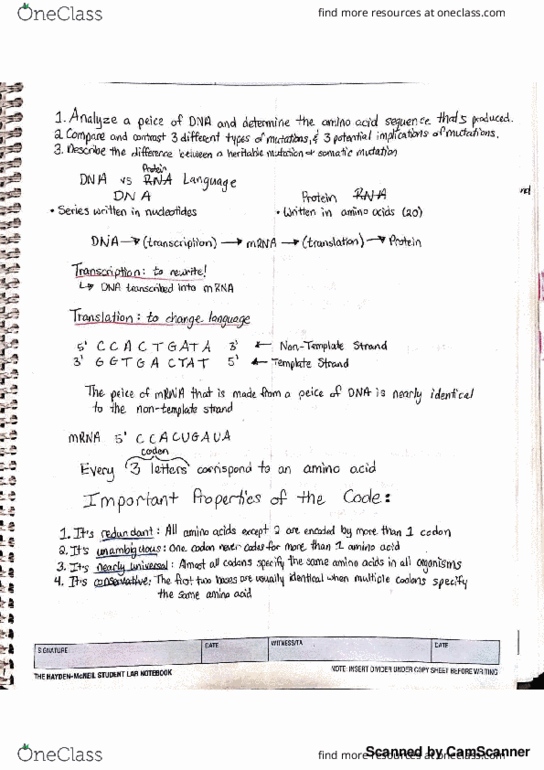 OneClass
find more resources at oneclass.com
1. Analyze a peice of DNA and determine the amino acid sequence that's produced.
2. Compare and contrast 3 different types of mutations, & 3 potential implications of mutations.
3. Describe the difference between a heritable mutation or somatic mutation
Protein
DNA vs RNA Language
DNA
Protein RNA
• Series written in nucleotides
• Written in amino acids (20)
DNA → (transcription) → mRNA → (translation) → Protein
Transcription: to rewrite!
↳ DNA transcribed into mRNA
Translation: to change language
5' C C A C T G A T A 3' ← Non-Template Strand
3' G G T G A C T A T 5' ← Template Strand
The peice of mRNA that is made from a peice of DNA is nearly identical
to the non-template strand
mRNA 5' C C A C U G A U A
codon
Every 3 letters corrispond to an amino acid
Important Properties of the Code:
1. It's redundant: All amino acids except 2 are encoded by more than 1 codon
2. It's unambiguous: One codon never codes for more than 1 amino acid
3. It's nearly universal: Almost all codons specify the same amino acids in all organisms
4. It's conservative: The first two bases are usually identical when multiple codons specify
the same amino acid
SIGNATURE DATE WITNESS/TA DATE
THE HAYDEN-McNEIL STUDENT LAB NOTEBOOK
NOTE: INSERT DIVIDER UNDER COPY SHEET BEFORE WRITING
Scanned by CamScanner
OneClass
find more resources at oneclass.com